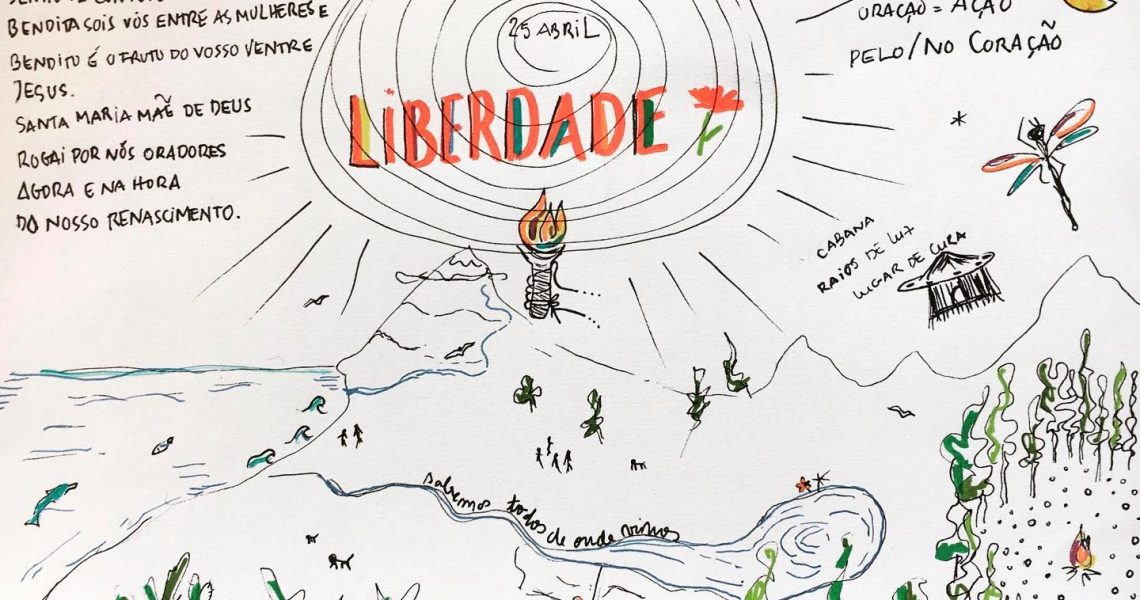 BENDITA SOIS VÓS ENTRE AS MULHERES E
BENDITO É O FRUTO DO VOSSO VENTRE
JESUS.
SANTA MARIA MÃE DE DEUS
ROGAI POR NÓS ORADORES
AGORA E NA HORA
DO NOSSO RENASCIMENTO.
25 ABRIL
LiBERDADE
ORAÇÃO = AÇÃO
PELO/NO CORAÇÃO
CABANA
RAIOS DE LUZ
LUGAR DE CURA
sabemos todos de onde vimos